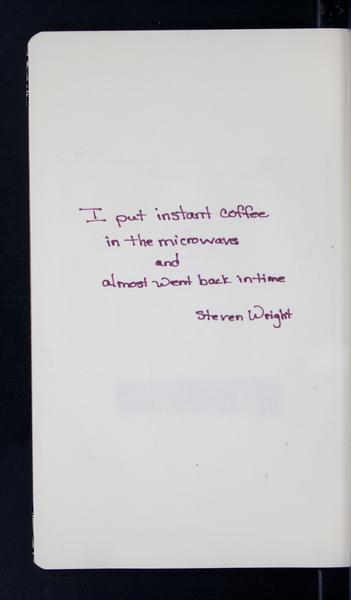 I put instant coffee
in the microwave
and
almost went back in time
Steven Wright